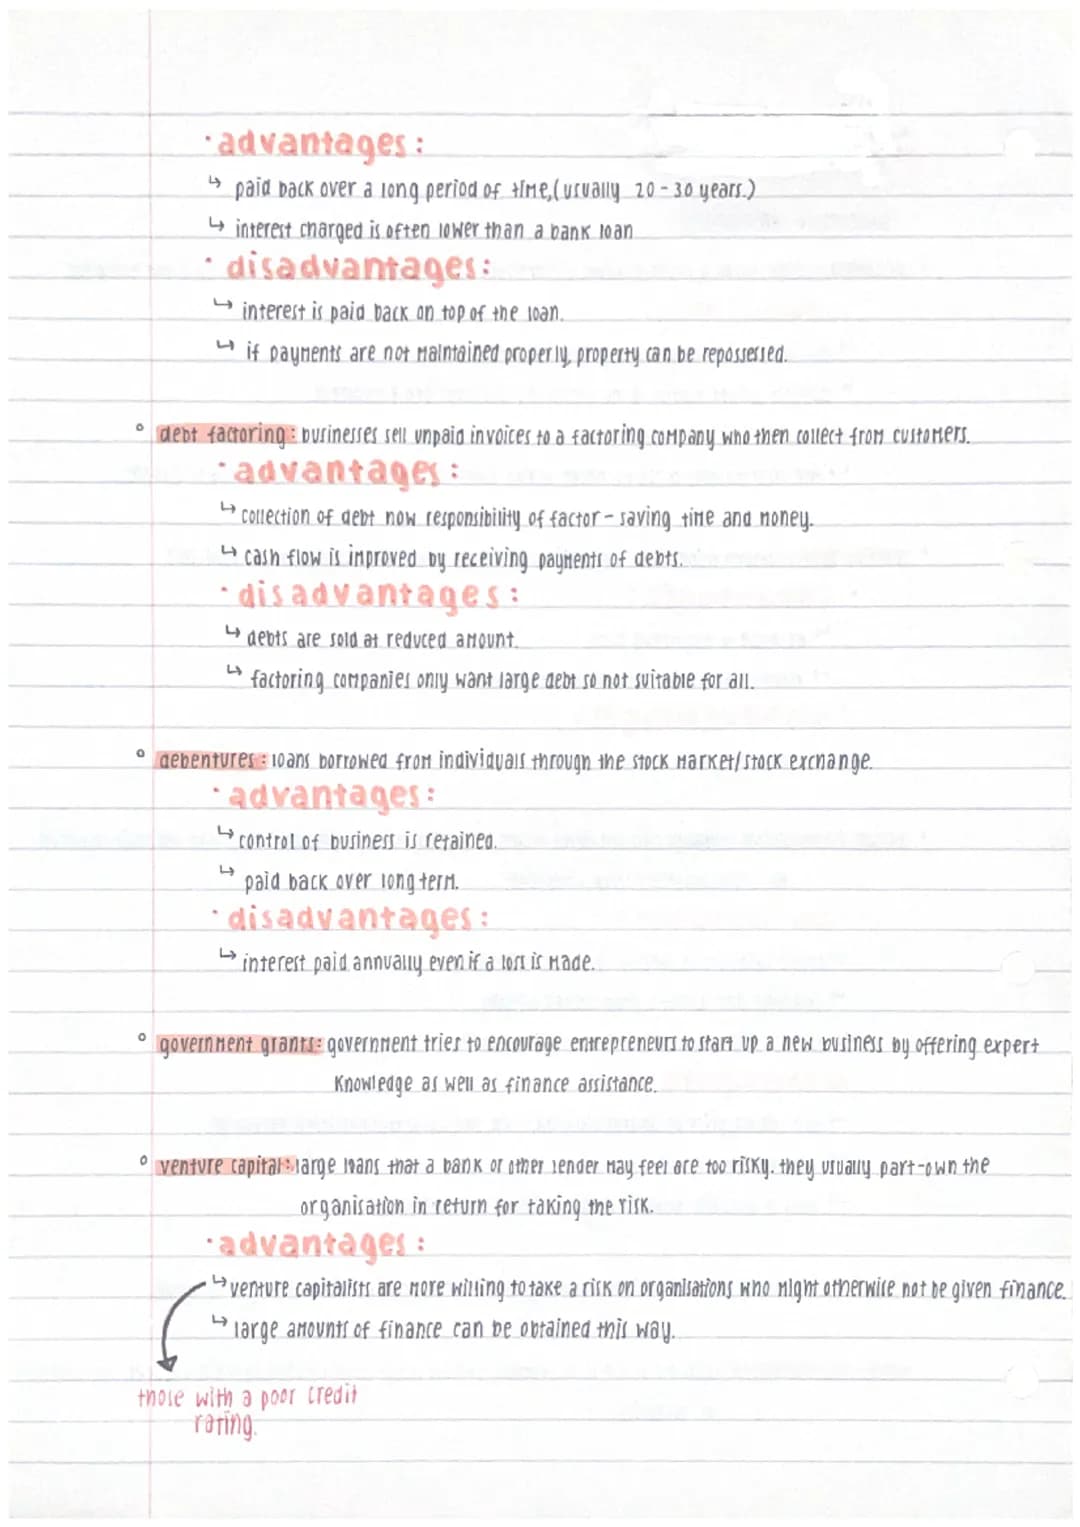 · advantages:
↳ paid back over a long period of time, (usually 20 - 30 years.)
↳ interest charged is often lower than a bank loan
· disadvantages:
↳ interest is paid back on top of the loan.
↳ if payments are not maintained properly, property can be repossessed.
° debt factoring: businesses sell unpaid invoices to a factoring company who then collect from customers.
· advantages:
↳ collection of debt now responsibility of factor - saving time and money.
↳ cash flow is improved by receiving payments of debts.
· disadvantages:
↳ debts are sold at reduced amount.
↳ factoring companies only want large debt so not suitable for all.
° debentures: loans borrowed from individuals through the stock market/stock exchange.
· advantages:
↳ control of business is retained.
↳ paid back over long term.
· disadvantages:
↳ interest paid annually even if a loss is made.
° government grants: government tries to encourage entrepreneurs to start up a new business by offering expert
knowledge as well as finance assistance.
° venture capital: large loans that a bank or other lender may feel are too risky. they usually part-own the
organisation in return for taking the risk.
· advantages:
↳ venture capitalists are more willing to take a risk on organisations who might otherwise not be given finance.
↳ large amounts of finance can be obtained this way.
those with a poor credit
rating.